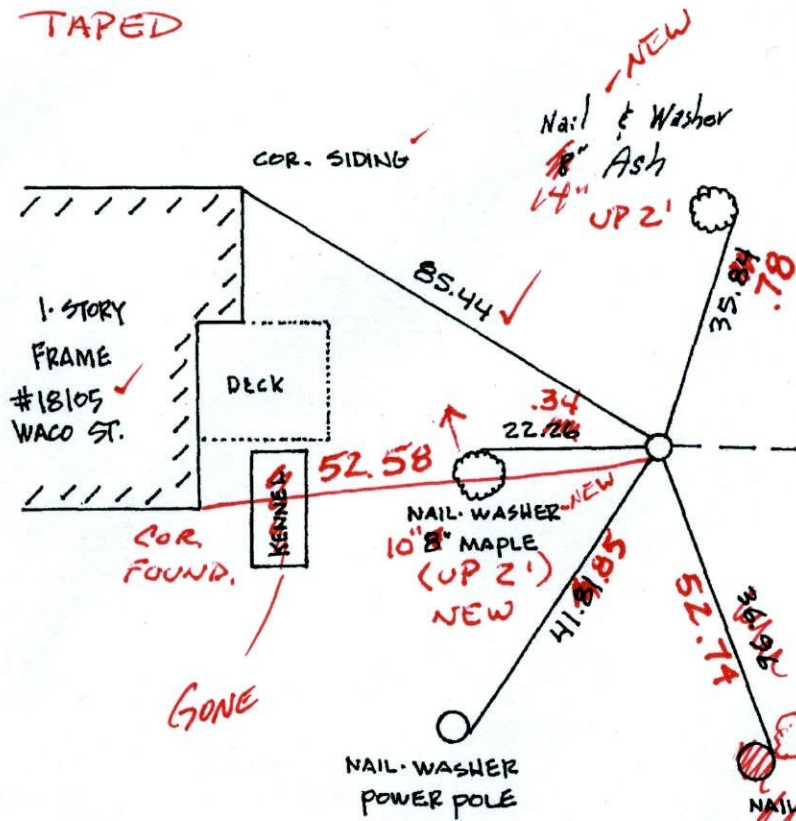 TAPED
NEW
Nail & Washer
8" Ash
14"
UP 2'
COR. SIDING
85.44
35.84
.78
1-STORY
FRAME
#18105
WACO ST.
DECK
.34
22.26
52.58
KENNEL
NAIL-WASHER
NEW
10" 8" MAPLE
(UP 2')
NEW
COR.
FOUND.
41.81
.85
52.74
36.96
GONE
NAIL-WASHER
POWER POLE
NAIL